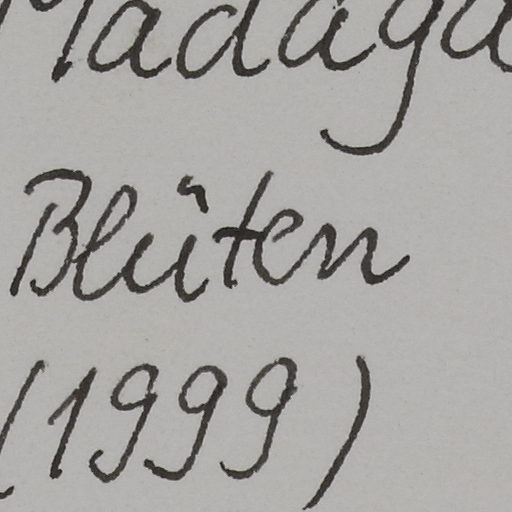 Madaga
Blüten
(1999)